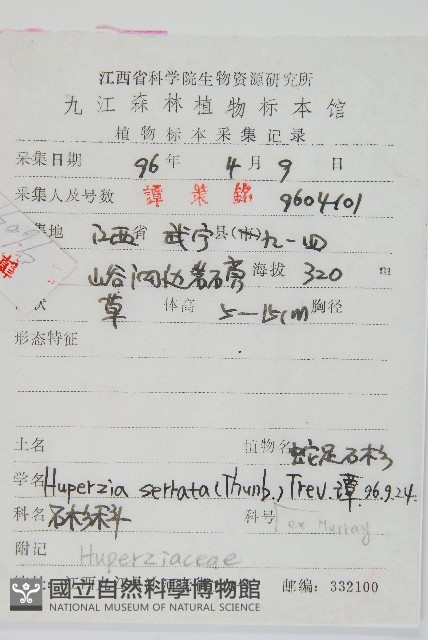 江西省科学院生物资源研究所
九江森林植物标本馆
植物标本采集记录
采集日期 96 年 4 月 9 日
采集人及号数 譚策銘 9604101
集地 江西 省 武宁 县(市) 九一四
山谷 海拔 320 m
状 草 体高 5—15cm 胸径
形态特征
土名 植物名 蛇足石杉
学名 Huperzia serrata (Thunb.) Trev. 譚 96.9.24.
科名 石杉科 科号 ex Murray
附记 Huperziaceae
邮编: 332100
國立自然科學博物館
NATIONAL MUSEUM OF NATURAL SCIENCE